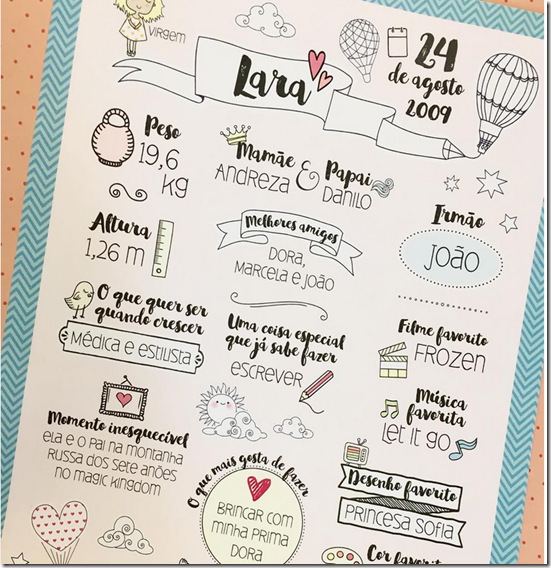 VIRGEM
Lara
24
de agosto
2009
Peso
19,6
kg
Mamãe & Papai
ANDREZA DANILO
Irmão
João
Altura
1,26 m
Melhores amigos
DORA,
MARCELA E JOÃO
O que quer ser
quando crescer
MÉDICA E ESTILISTA
Uma coisa especial
que já sabe fazer
ESCREVER
Filme favorito
FROZEN
Música
favorita
LET IT GO
Momento inesquecível
ELA E O PAI NA MONTANHA
RUSSA DOS SETE ANÕES
NO MAGIC KINGDOM
O que mais gosta de fazer
BRINCAR COM
MINHA PRIMA
DORA
Desenho favorito
PRINCESA SOFIA
Cor favorita